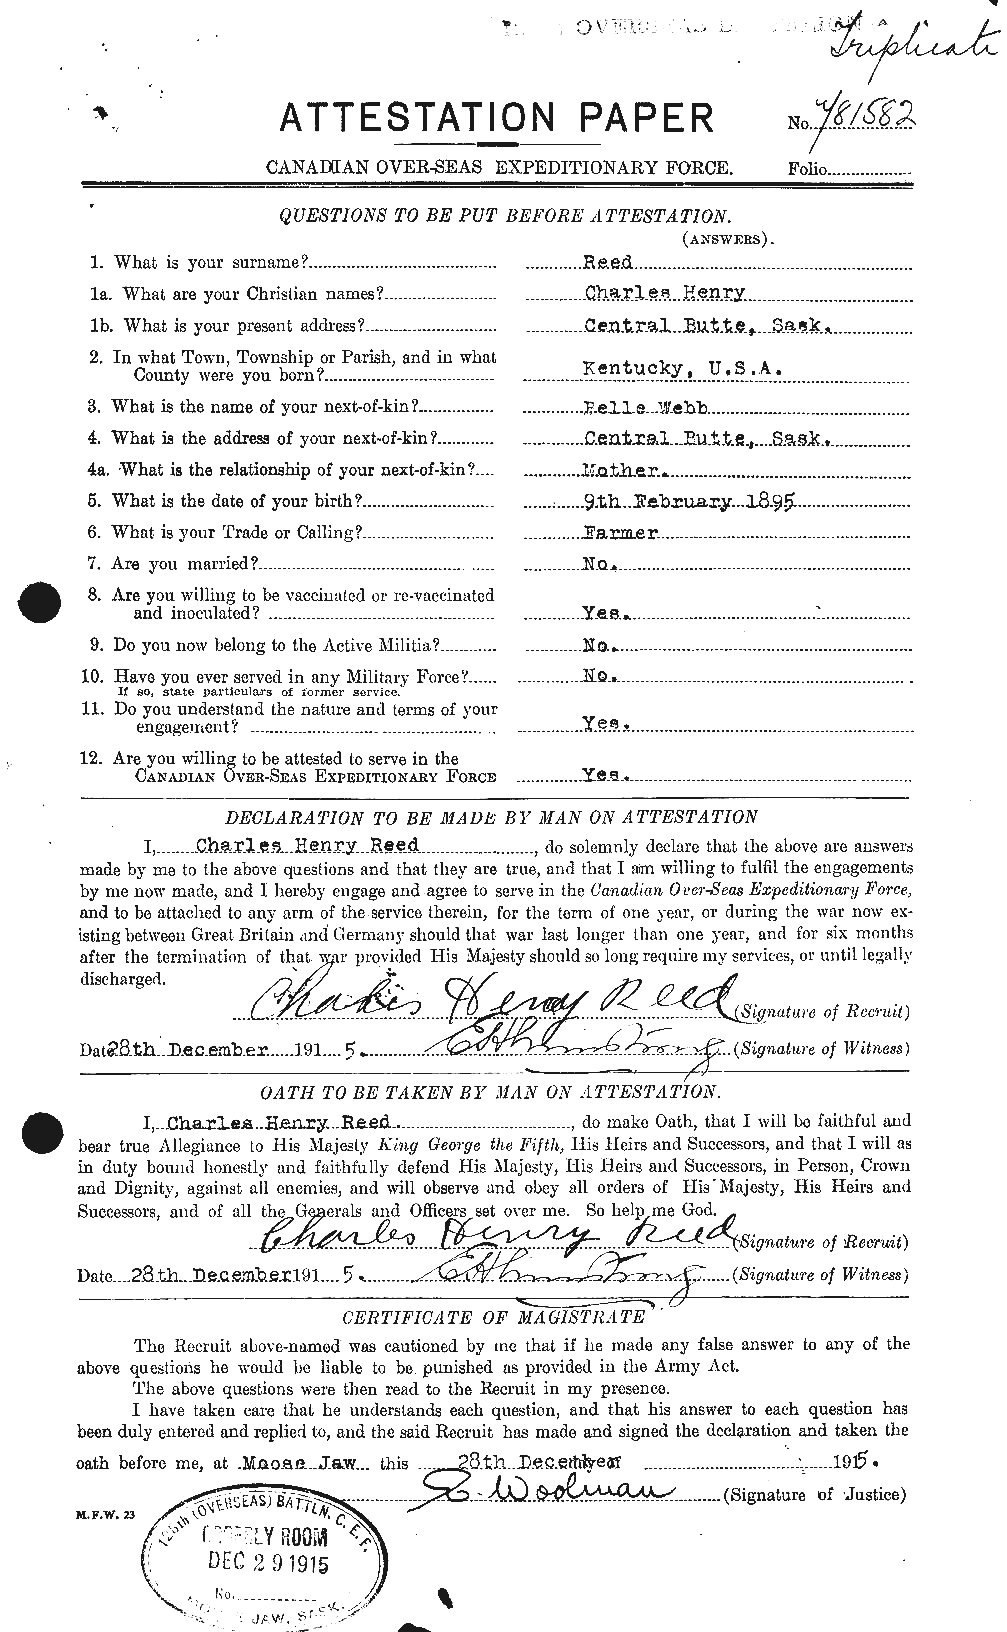 OVERSEAS
Triplicate
ATTESTATION PAPER
No. 781582
CANADIAN OVER-SEAS EXPEDITIONARY FORCE.
Folio
QUESTIONS TO BE PUT BEFORE ATTESTATION.
(ANSWERS).
1. What is your surname? Reed
1a. What are your Christian names? Charles Henry
1b. What is your present address? Central Butte, Sask.
2. In what Town, Township or Parish, and in what
County were you born? Kentucky, U.S.A.
3. What is the name of your next-of-kin? Belle Webb
4. What is the address of your next-of-kin? Central Butte, Sask.
4a. What is the relationship of your next-of-kin? Mother.
5. What is the date of your birth? 9th February 1895
6. What is your Trade or Calling? Farmer
7. Are you married? No.
8. Are you willing to be vaccinated or re-vaccinated
and inoculated? Yes.
9. Do you now belong to the Active Militia? No.
10. Have you ever served in any Military Force? No.
If so, state particulars of former service.
11. Do you understand the nature and terms of your
engagement? Yes.
12. Are you willing to be attested to serve in the
CANADIAN OVER-SEAS EXPEDITIONARY FORCE Yes.
DECLARATION TO BE MADE BY MAN ON ATTESTATION
I, Charles Henry Reed, do solemnly declare that the above are answers
made by me to the above questions and that they are true, and that I am willing to fulfil the engagements
by me now made, and I hereby engage and agree to serve in the Canadian Over-Seas Expeditionary Force,
and to be attached to any arm of the service therein, for the term of one year, or during the war now ex-
isting between Great Britain and Germany should that war last longer than one year, and for six months
after the termination of that war provided His Majesty should so long require my services, or until legally
discharged.
Charles Henry Reed (Signature of Recruit)
Date 28th December 1915. (Signature of Witness)
OATH TO BE TAKEN BY MAN ON ATTESTATION.
I, Charles Henry Reed., do make Oath, that I will be faithful and
bear true Allegiance to His Majesty King George the Fifth, His Heirs and Successors, and that I will as
in duty bound honestly and faithfully defend His Majesty, His Heirs and Successors, in Person, Crown
and Dignity, against all enemies, and will observe and obey all orders of His Majesty, His Heirs and
Successors, and of all the Generals and Officers set over me. So help me God.
Charles Henry Reed (Signature of Recruit)
Date 28th December 1915. (Signature of Witness)
CERTIFICATE OF MAGISTRATE
The Recruit above-named was cautioned by me that if he made any false answer to any of the
above questions he would be liable to be punished as provided in the Army Act.
The above questions were then read to the Recruit in my presence.
I have taken care that he understands each question, and that his answer to each question has
been duly entered and replied to, and the said Recruit has made and signed the declaration and taken the
oath before me, at Moose Jaw this 28th December 1915.
Woolman (Signature of Justice)
M.F.W. 23
128th (OVERSEAS) BATTLN. C.E.F.
ORDERLY ROOM
DEC 29 1915
No.
MOOSE JAW, SASK.